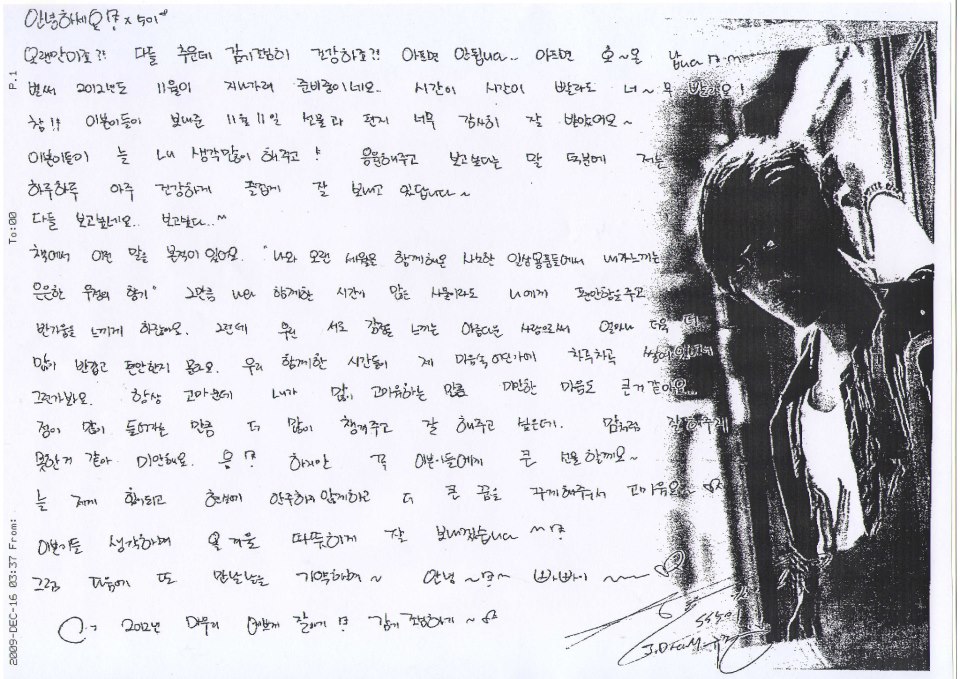 안녕하세요
오랜만이죠?! 다들 추운데 감기조심히 건강하죠?! 아프면 안됩니다.. 아프면 호~온 납니다
벌써 2012년도 11월이 지나가려 준비중이네요.. 시간이 시간이 빨라도 너~무 빨라요!
참!! 이쁜이들이 보내준 11월 11일 선물과 편지 너무 감사히 잘 받았어요~
이쁜이들이 늘 내 생각많이 해주고! 응원해주고 보고싶다는 말 덕분에 저는
하루하루 아주 건강하게 즐겁게 잘 보내고 있답니다~
다들 보고싶네요.. 보고싶다...^^
책에서 이런 말을 본적이 있어요. "나와 오랜 세월을 함께해온 사소한 일상용품들에서 내가느끼는
은은한 우정의 향기" 그만큼 나와 함께한 시간이 많은 사물이라도 나에게 편안함을주고
반가움을 느끼게 하잖아요. 그런데 우린 서로 감정을 느끼는 아름다운 사람으로써 얼마나 더욱 더
많이 반갑고 편안한지 몰라요. 우리 함께한 시간들이 제 마음속 어딘가에 차곡차곡 쌓여있나봐
그런가봐요. 항상 고마운데 내가 많이 고마워하는 만큼 미안한 마음도 큰거 같아요..
정이 많이 들어갔을 만큼 더 많이 챙겨주고 잘 해주고 싶은데.. 맘처럼 잘해주지
못한거 같아 미안해요. 하지만 꼭 이쁜이들에게 큰 선물 할께요~
늘 제게 힘이되고 현실에 안주하지 않게하고 더 큰 꿈을 꾸게해주어서 고마워요~
이쁜이들 생각하며 올 겨울 따뜻하게 잘 보내겠습니다 ^^
그럼 다음에 또 만날날을 기약하며~ 안녕~ 빠빠이~
2012년 마무리 예쁘게 잘하기 감기조심하기~
2009-DEC-16 03:37 From: To:00 P.1